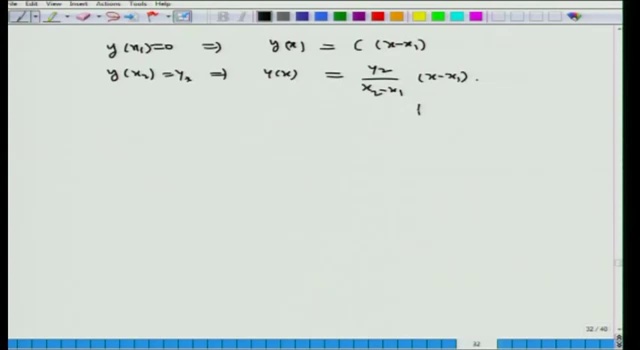 File View Insert Actions Tools Help
y(x₁)=0 ⇒ y(x) = C (x-x₁)
y(x₂) = y₂ ⇒ y(x) = y₂/(x₂-x₁) (x-x₁).
32 / 40
32